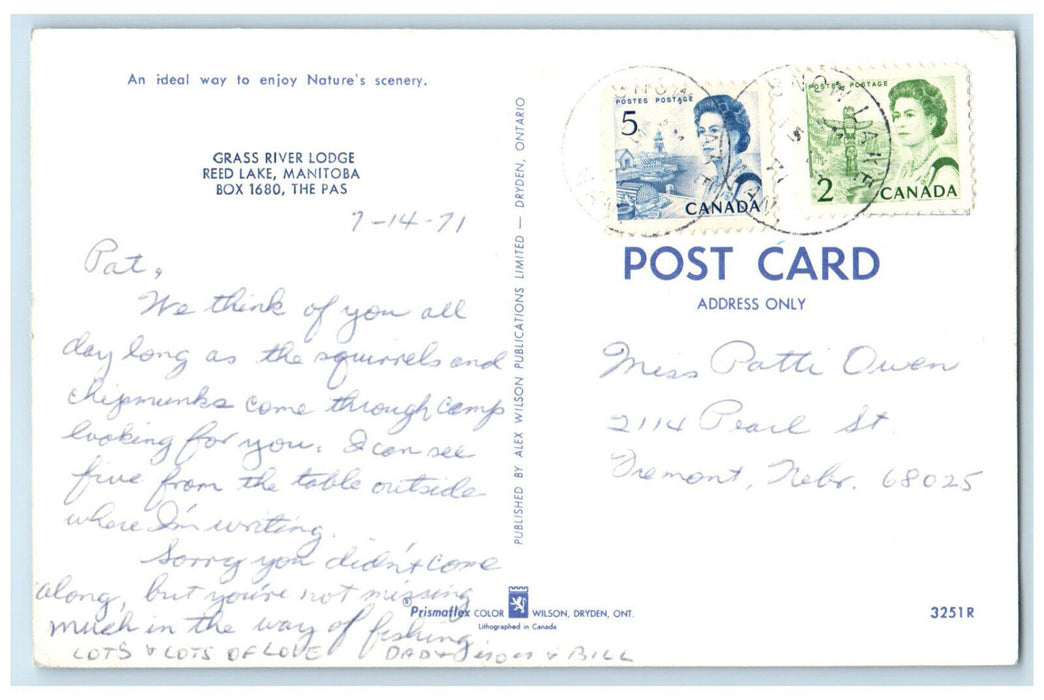 An ideal way to enjoy Nature's scenery.
GRASS RIVER LODGE
REED LAKE, MANITOBA
BOX 1680, THE PAS
7-14-71
Pat,
We think of you all
day long as the squirrels and
chipmunks come through camp
looking for you. I can see
five from the table outside
where I'm writing.
Sorry you didn't come
along, but you're not missing
much in the way of fishing.
LOTS & LOTS OF LOVE DAD & & BILL
PUBLISHED BY ALEX WILSON PUBLICATIONS LIMITED — DRYDEN, ONTARIO
POSTES POSTAGE
5
CANADA
POSTES POSTAGE
2
CANADA
SNOW LAKE
SNOW LAKE
POST CARD
ADDRESS ONLY
Miss Patti Owen
2114 Pearl St.
Fremont, Nebr. 68025
®Prismaflex COLOR WILSON, DRYDEN, ONT.
Lithographed in Canada
3251R